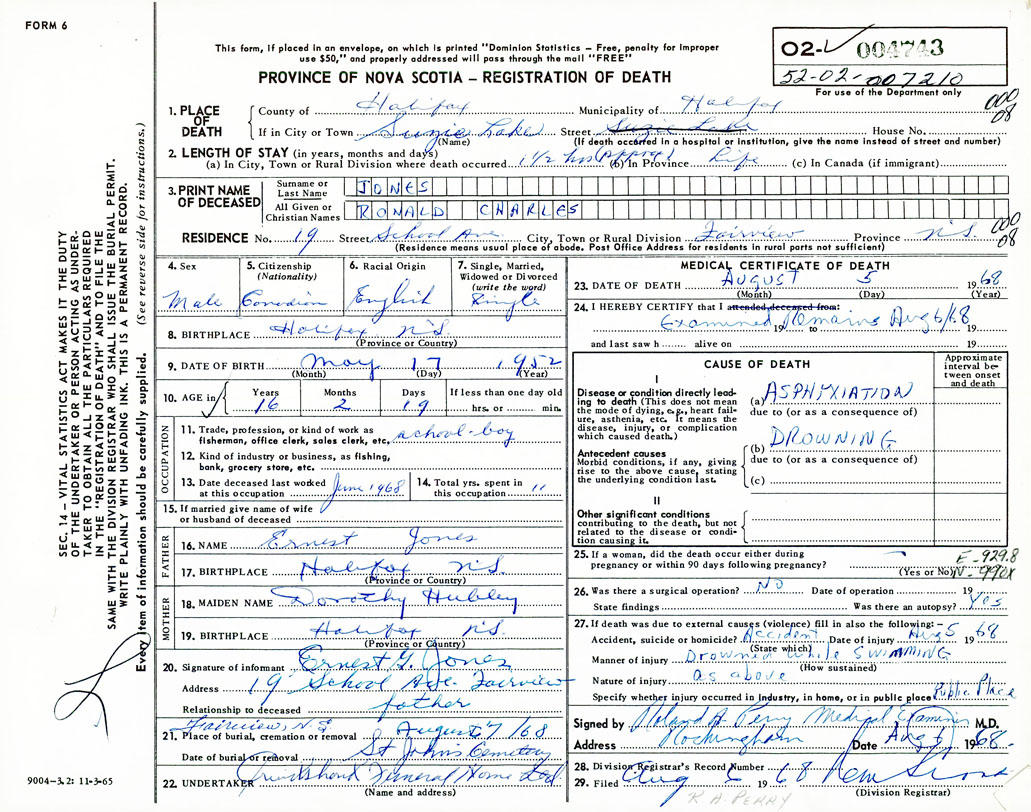 FORM 6
This form, if placed in an envelope, on which is printed "Dominion Statistics – Free, penalty for improper
use $50," and properly addressed will pass through the mail "FREE"
PROVINCE OF NOVA SCOTIA – REGISTRATION OF DEATH
02- 004743
52-02-007210
For use of the Department only
1. PLACE OF DEATH
County of Halifax Municipality of Halifax
000
08
If in City or Town Suzie Lake Street Suzie Lake House No.
(Name) (If death occurred in a hospital or institution, give the name instead of street and number)
2. LENGTH OF STAY (in years, months and days)
(a) In City, Town or Rural Division where death occurred 1 1/2 hrs (Approx) (b) In Province Life (c) In Canada (if immigrant)
3. PRINT NAME OF DECEASED
Surname or Last Name JONES
All Given or Christian Names RONALD CHARLES
000
08
RESIDENCE No. 19 Street School Ave. City, Town or Rural Division Fairview Province N.S.
(Residence means usual place of abode. Post Office Address for residents in rural parts not sufficient)
4. Sex
Male
5. Citizenship
(Nationality)
Canadian
6. Racial Origin
English
7. Single, Married,
Widowed or Divorced
(write the word)
Single
8. BIRTHPLACE Halifax N.S.
(Province or Country)
9. DATE OF BIRTH May 17 1952
(Month) (Day) (Year)
10. AGE in
Years Months Days If less than one day old
16 2 19 hrs. or min.
OCCUPATION
11. Trade, profession, or kind of work as
fisherman, office clerk, sales clerk, etc. school-boy
12. Kind of industry or business, as fishing,
bank, grocery store, etc.
13. Date deceased last worked
at this occupation June 1968
14. Total yrs. spent in
this occupation 11
15. If married give name of wife
or husband of deceased
FATHER
16. NAME Ernest Jones
17. BIRTHPLACE Halifax N.S.
(Province or Country)
MOTHER
18. MAIDEN NAME Dorothy Hubley
19. BIRTHPLACE Halifax N.S.
(Province or Country)
20. Signature of informant Ernest G. Jones
Address 19 School Ave. Fairview
Relationship to deceased father
Fairview, N.S
21. Place of burial, cremation or removal August 7/68
Date of burial or removal St John's Cemetery
22. UNDERTAKER Cruikshank Funeral Home Ltd.
(Name and address)
MEDICAL CERTIFICATE OF DEATH
23. DATE OF DEATH AUGUST 5 1968
(Month) (Day) (Year)
24. I HEREBY CERTIFY that I attended deceased from:
Examined Remains Aug 6/68
19 to 19
and last saw h alive on 19
CAUSE OF DEATH
Approximate
interval be-
tween onset
and death
I
Disease or condition directly lead-
ing to death (This does not mean
the mode of dying, e.g., heart fail-
ure, asthenia, etc. It means the
disease, injury, or complication
which caused death.)
(a) ASPHYXIATION
due to (or as a consequence of)
Antecedent causes
Morbid conditions, if any, giving
rise to the above cause, stating
the underlying condition last.
(b) DROWNING
due to (or as a consequence of)
(c)
II
Other significant conditions
contributing to the death, but not
related to the disease or condi-
tion causing it.
25. If a woman, did the death occur either during
pregnancy or within 90 days following pregnancy?
(Yes or No)
E-929.8
N-990X
26. Was there a surgical operation? NO Date of operation 19
State findings Was there an autopsy? Yes
27. If death was due to external causes (violence) fill in also the following:–
Accident, suicide or homicide? Accident Date of injury Aug 5 1968
(State which)
Manner of injury Drowned while SWIMMING
(How sustained)
Nature of injury as above
Specify whether injury occurred in Industry, in home, or in public place Public Place
Signed by Roland A. Perry Medical Examiner M.D.
Address Rockingham Date Aug 6 1968
28. Division Registrar's Record Number
29. Filed Aug 6 1968
(Division Registrar)
R A PERRY
SEC. 14 – VITAL STATISTICS ACT MAKES IT THE DUTY
OF THE UNDERTAKER OR PERSON ACTING AS UNDER-
TAKER TO OBTAIN ALL THE PARTICULARS REQUIRED
IN THE "REGISTRATION OF DEATH" AND TO FILE THE
SAME WITH THE DIVISION REGISTRAR WHO SHALL ISSUE THE BURIAL PERMIT.
WRITE PLAINLY WITH UNFADING INK. THIS IS A PERMANENT RECORD.
Every item of information should be carefully supplied. (See reverse side for instructions.)
9004–3.2: 11-3-65